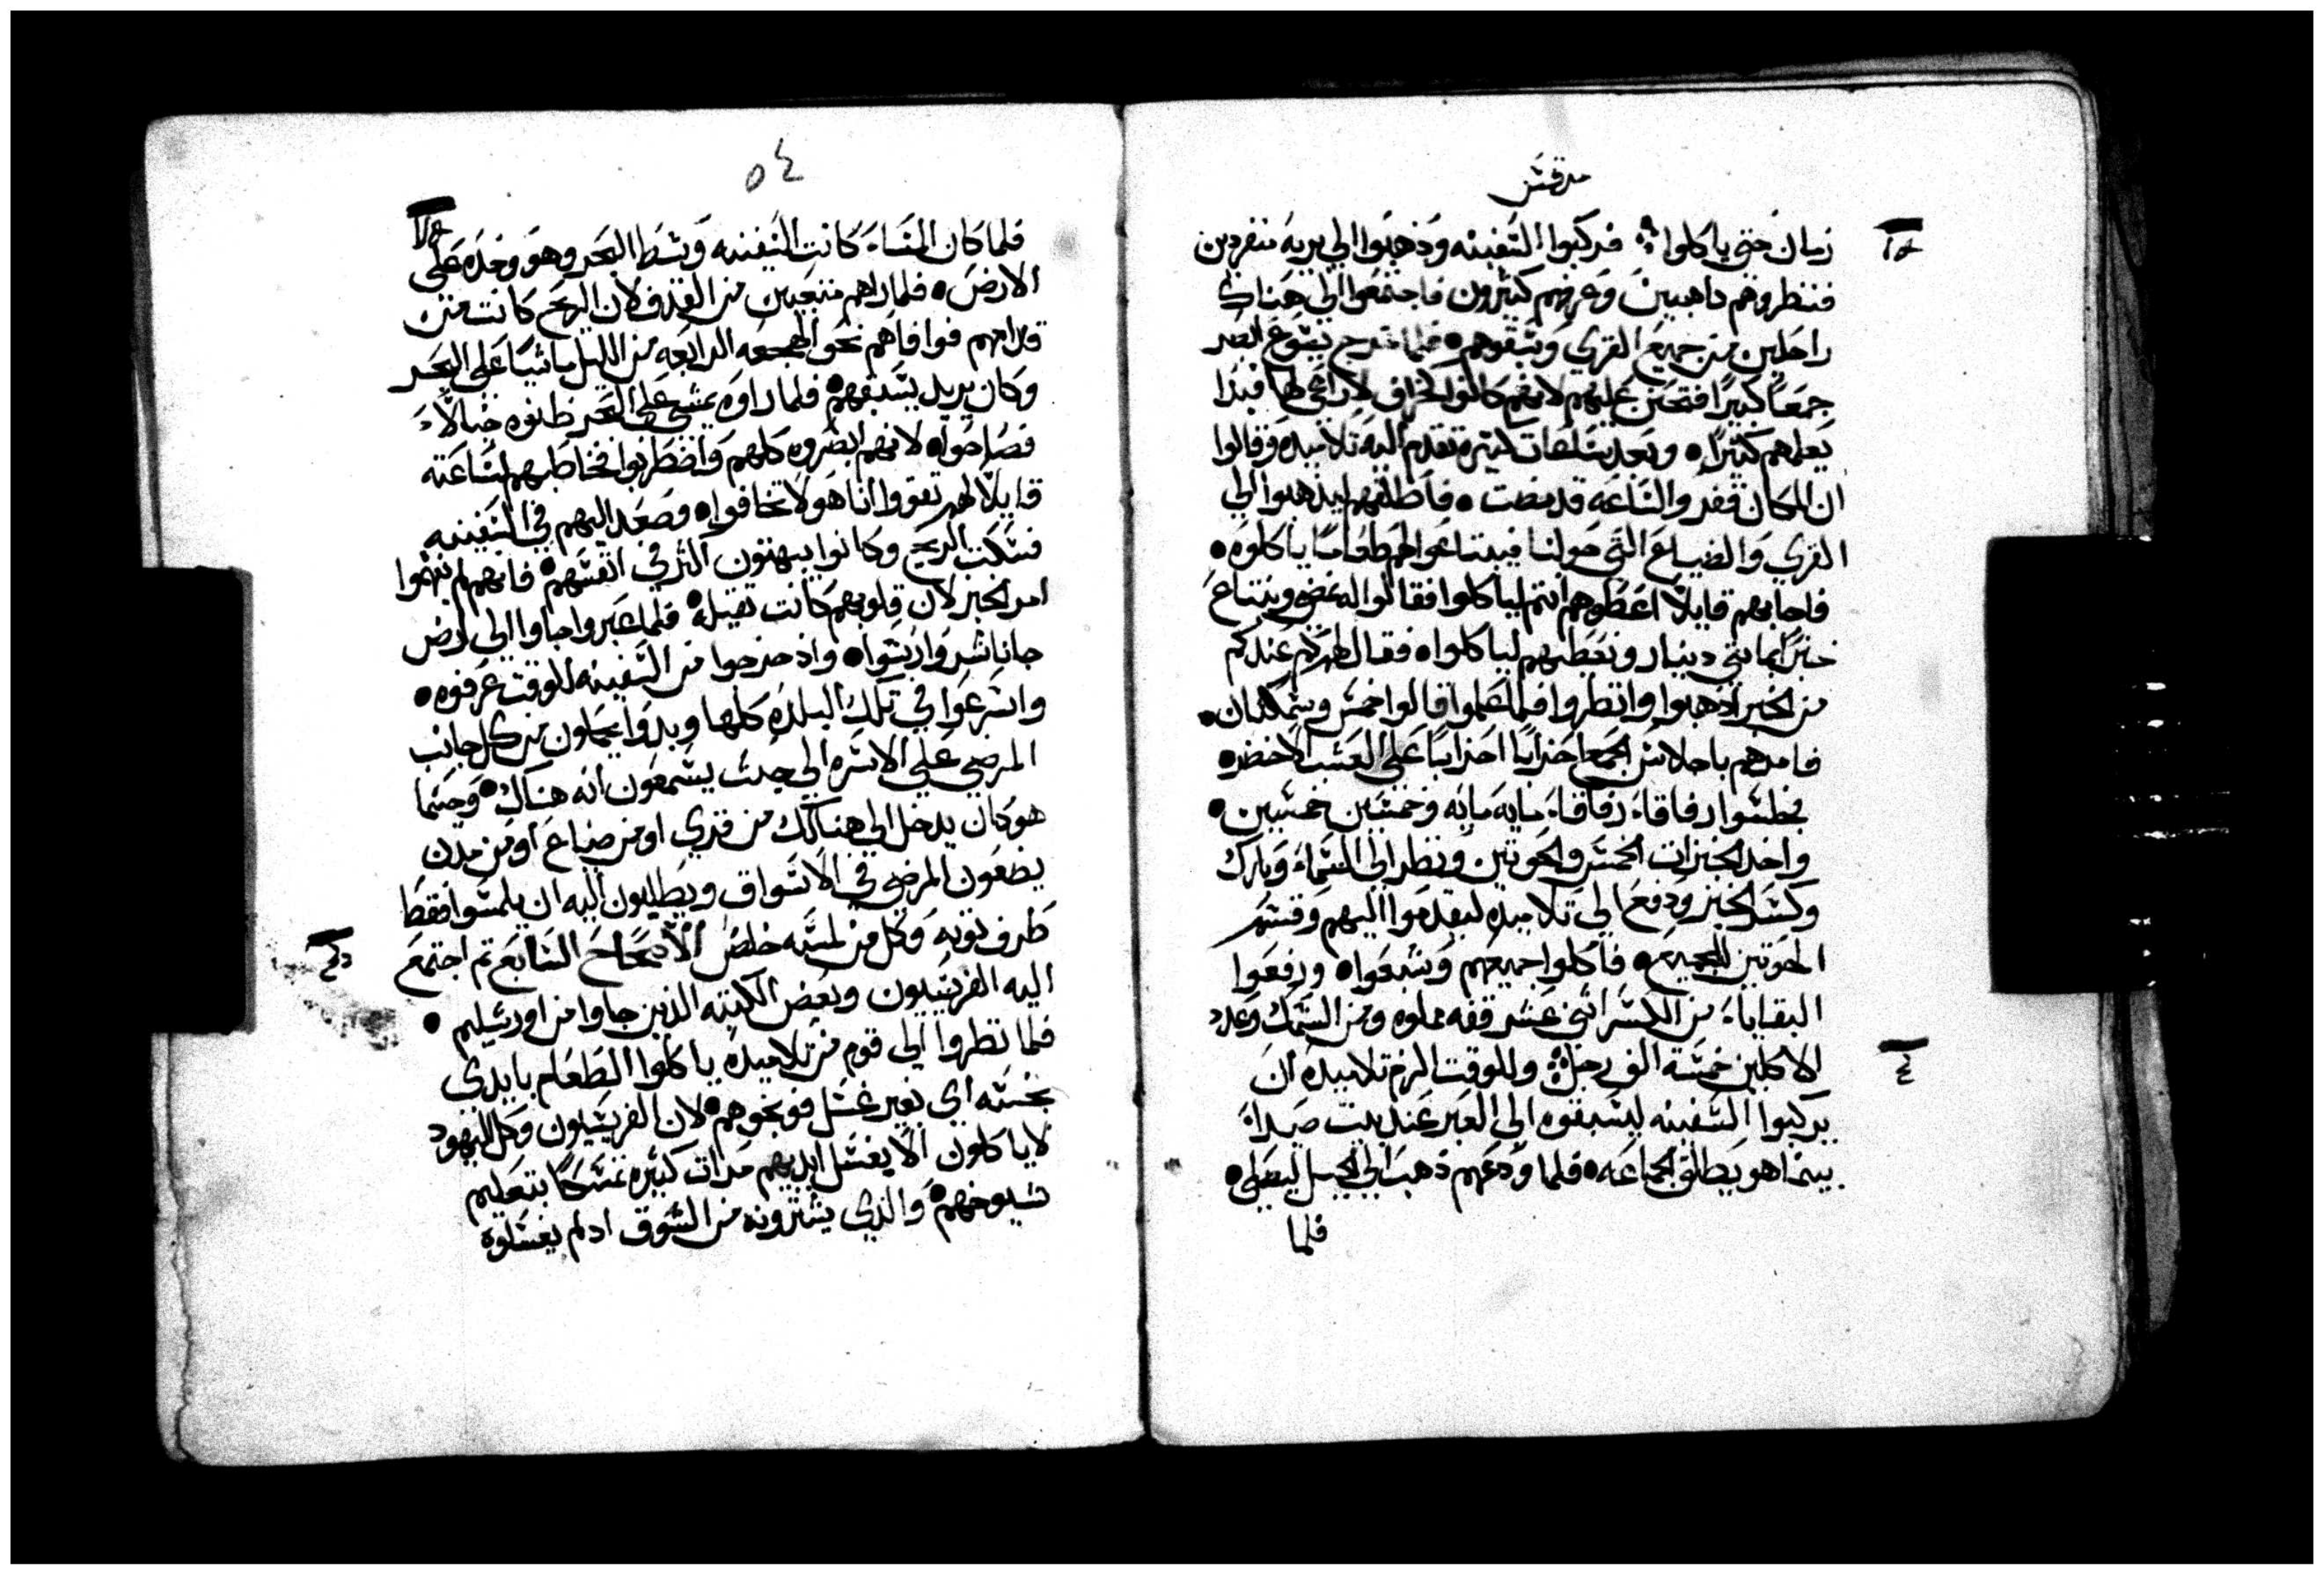 مرقس
زمان حتى ياكلوا فركبوا السفينه وذهبوا الي بريه منفردين
فنظروهم داهبين وعرفهم كثيرون فاجتمعوا الي هناك
راجلين من جميع القري وسبقوهم فلما خرج يسوع ابصر
جمعًا كبيرًا فتحنن عليهم لانهم كانوا كخراف لا راعي لها فبدا
يعلمهم كثيرًا وبعد ساعات كثيره تقدم اليه تلاميده وقالوا
ان المكان قفر والساعه قد مضت فاطلقهم ليذهبوا الي
القري والضياع التي حولنا فيبتاعوا لهم طعامًا ياكلوه
فاجابهم قايلًا اعطوهم انتم لياكلوا فقالوا له نمضي ونبتاع
خبزًا بمايتي دينار ونعطيهم لياكلوا فقال لهم كم عندكم
من الخبز اذهبوا وانظروا فلما علموا قالوا خمس وسمكتان
فامرهم باجلاس الجمع احزابًا احزابًا علي العشب الاخضر
فجلسوا رفاقاء رفاقاء مايه مايه وخمسين خمسين
واخد الخبزات الخمس والحوتين ونظر الي السماء وبارك
وكسر الخبز ودفع الي تلاميده ليقدموا اليهم وقسم
الحوتين للجميع فاكلوا جميعهم وشبعوا ورفعوا
البقاياء من الكسر اثني عشر قفه مملوه ومن السمك وعدد
الاكلين خمسة الف رجل وللوقت الزم تلاميده ان
يركبوا السفينه ليسبقوه الي العبر عند بيت صيدا
بينما هو يطلق الجماعه فلما ودعهم ذهب الي الجبل ليصلي
فلما
٥٤
فلما كان المساء كانت السفينه وسط البحر وهو وحده علي
الارض فلما راهم متعبين من القدف لان الريح كانت من
قدامهم فوافاهم نحو الهجعه الرابعه من الليل ماشيًا علي البحر
وكان يريد يسبقهم فلما راوه يمشي علي البحر ظنوه خيالًا
فصاحوا لانهم ابصروه كلهم واضطربوا فخاطبهم لساعته
قايلًا لهم تقووا انا هو لا تخافوا وصعد اليهم في السفينه
فسكت الريح وكانوا يبهتون اكثر في انفسهم فانهم لم يفهموا
امر الخبز لان قلوبهم كانت ثقيله فلما عبروا جاوا الي ارض
جاناشر وارسوا واذ خرجوا من السفينه للوقت عرفوه
واسرعوا في تلك البلده كلها وبدوا يحملون من كل جانب
المرضي علي الاسره الي حيث يسمعون انه هناك وحيثما
هو كان يدخل الي هنالك من قري او من ضياع او من مدن
يضعون المرضي في الاسواق ويطلبون اليه ان يلمسوا فقط
طرف ثوبه وكل من لمسه خلص الاصحاح السابع ثم اجتمع
اليه الفريسيون وبعض الكتبه الذين جاوا من اورشليم
فلما نظروا الي قوم من تلاميده ياكلوا الطعام بايدي
نجسه اي بغير غسل فوبخوهم لان الفريسيون وكل اليهود
لا ياكلون الا يغسل ايديهم مرات كثيره تمسكًا بتعليم
شيوخهم والذي يشترونه من السوق ادلم يغسلوه